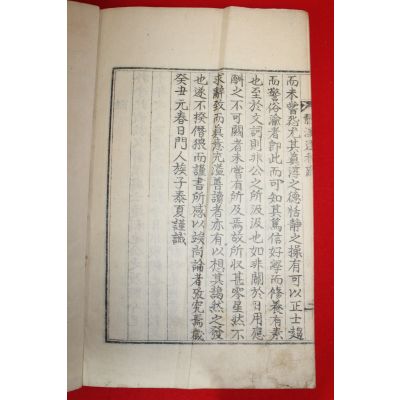 而未嘗怨尤其真淳之德恬靜之操有可以正士趨
而警俗渝者卽此而可知其篤信好學而修養有素
也至於文詞則非公之所汲汲也如非關於日用應
酬之不可闕者未嘗有所及焉故所收甚零星然不
求辭致而真意充溢善讀者亦有以想其藹然之發
也遂不揆僭猥而謹書所感以竢尚論者攷究焉歲
癸丑元春日門人族子泰夏謹識